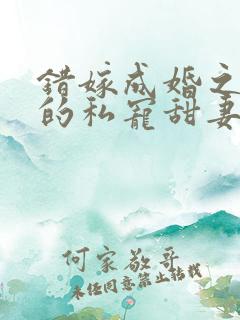 错嫁成婚之
的私宠甜妻
何家敬哥
未经同意禁止转载